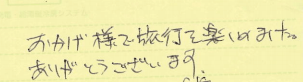 おかげ様で旅行を楽しめました。
ありがとうございます